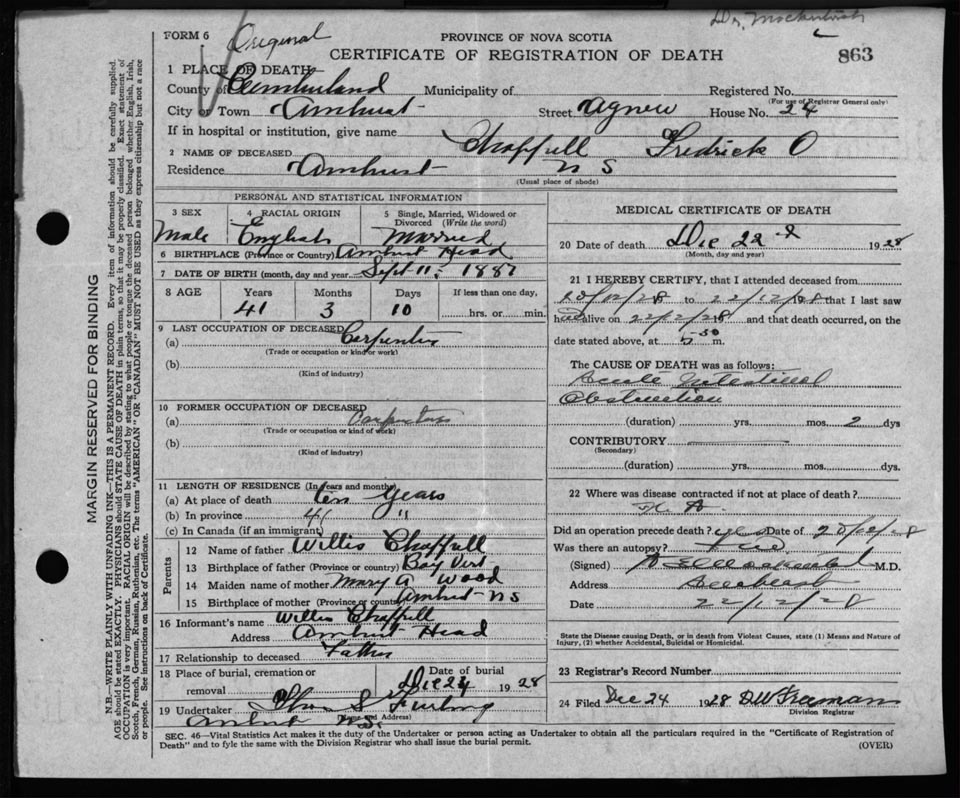 Dr. Mackintosh
FORM 6 Original PROVINCE OF NOVA SCOTIA
CERTIFICATE OF REGISTRATION OF DEATH 863
1 PLACE OF DEATH
County of Cumberland Municipality of Registered No.
(For use of Registrar General only)
City or Town Amherst Street Agnew House No. 24
If in hospital or institution, give name
2 NAME OF DECEASED Chappell Fredrick O
Residence Amherst N S
(Usual place of abode)
PERSONAL AND STATISTICAL INFORMATION
3 SEX 4 RACIAL ORIGIN 5 Single, Married, Widowed or Divorced (Write the word)
Male English Married
6 BIRTHPLACE (Province or Country) Amherst Head
7 DATE OF BIRTH (month, day and year) Sept 11, 1887
8 AGE Years Months Days If less than one day,
41 3 10 hrs. or min.
9 LAST OCCUPATION OF DECEASED
(a) Carpenter
(Trade or occupation or kind of work)
(b)
(Kind of industry)
10 FORMER OCCUPATION OF DECEASED
(a) Carpenter
(Trade or occupation or kind of work)
(b)
(Kind of industry)
11 LENGTH OF RESIDENCE (In years and months)
(a) At place of death ten years
(b) In province 41 "
(c) In Canada (if an immigrant)
Parents
12 Name of father Willis Chappell
13 Birthplace of father (Province or country) Bay Vert
14 Maiden name of mother Mary A Wood
15 Birthplace of mother (Province or country) Amherst N S
16 Informant's name Willis Chappell
Address Amherst Head
17 Relationship to deceased Father
18 Place of burial, cremation or removal Date of burial
Dec 24 1928
19 Undertaker Furlong
(Name and Address)
Amherst N.S.
MEDICAL CERTIFICATE OF DEATH
20 Date of death Dec 22nd 1928
(Month, day and year)
21 I HEREBY CERTIFY, that I attended deceased from
20/12/28 to 22/12/1928 that I last saw
h alive on 22/12/28 and that death occurred, on the
date stated above, at 5-30 m.
The CAUSE OF DEATH was as follows:
Acute Intestinal
Obstruction
(duration) yrs. mos. 2 dys
CONTRIBUTORY
(Secondary)
(duration) yrs. mos. dys.
22 Where was disease contracted if not at place of death?
Did an operation precede death? yes Date of 20/12/28
Was there an autopsy? no
(Signed) M.D.
Address Amherst
Date 22/12/28
State the Disease causing Death, or in death from Violent Causes, state (1) Means and Nature of
Injury, (2) whether Accidental, Suicidal or Homicidal.
23 Registrar's Record Number
24 Filed Dec 24 1928 D W Freeman
Division Registrar
SEC. 46—Vital Statistics Act makes it the duty of the Undertaker or person acting as Undertaker to obtain all the particulars required in the "Certificate of Registration of
Death" and to fyle the same with the Division Registrar who shall issue the burial permit. (OVER)
MARGIN RESERVED FOR BINDING
N.B.—WRITE PLAINLY WITH UNFADING INK—THIS IS A PERMANENT RECORD. Every item of information should be carefully supplied.
AGE should be stated EXACTLY. PHYSICIANS should STATE CAUSE OF DEATH in plain terms, so that it may be properly classified. Exact statement of
OCCUPATION is very important. RACIAL ORIGIN will be described by stating to what people or tongue the deceased person belonged whether English, Irish,
Scotch, French, German, Russian, Ruthenian, etc. The terms "AMERICAN" OR "CANADIAN" MUST NOT BE USED as they express citizenship but not a race
or people. See instructions on back of Certificate.